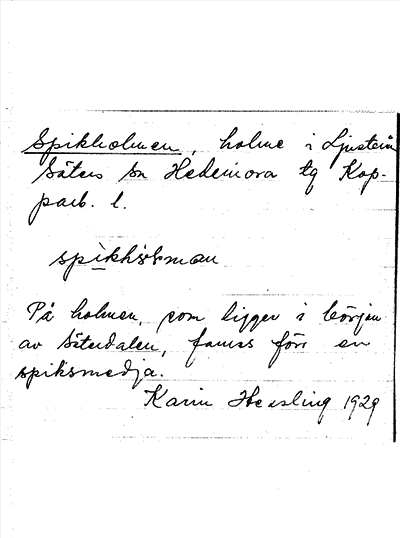 Spikholmen, holme i Ljustern
Säters sn Hedemora tg Kop-
parb. l.
spikhòlman
På holmen, som ligger i början
av Säterdalen, fanns förr en
spiksmedja.
Karin Hessling 1929